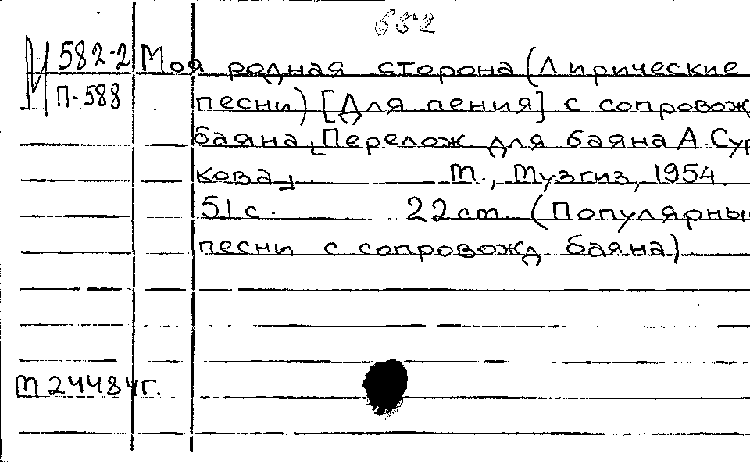 582
М 582-2 Моя родная сторона (Лирические
П-588 песни) [Для пения] с сопровож
баяна, Перелож для баяна А Сур
кова, М., Музгиз, 1954
51 с. 22 см (Популярны
песни с сопровожд баяна)
М 24484г.